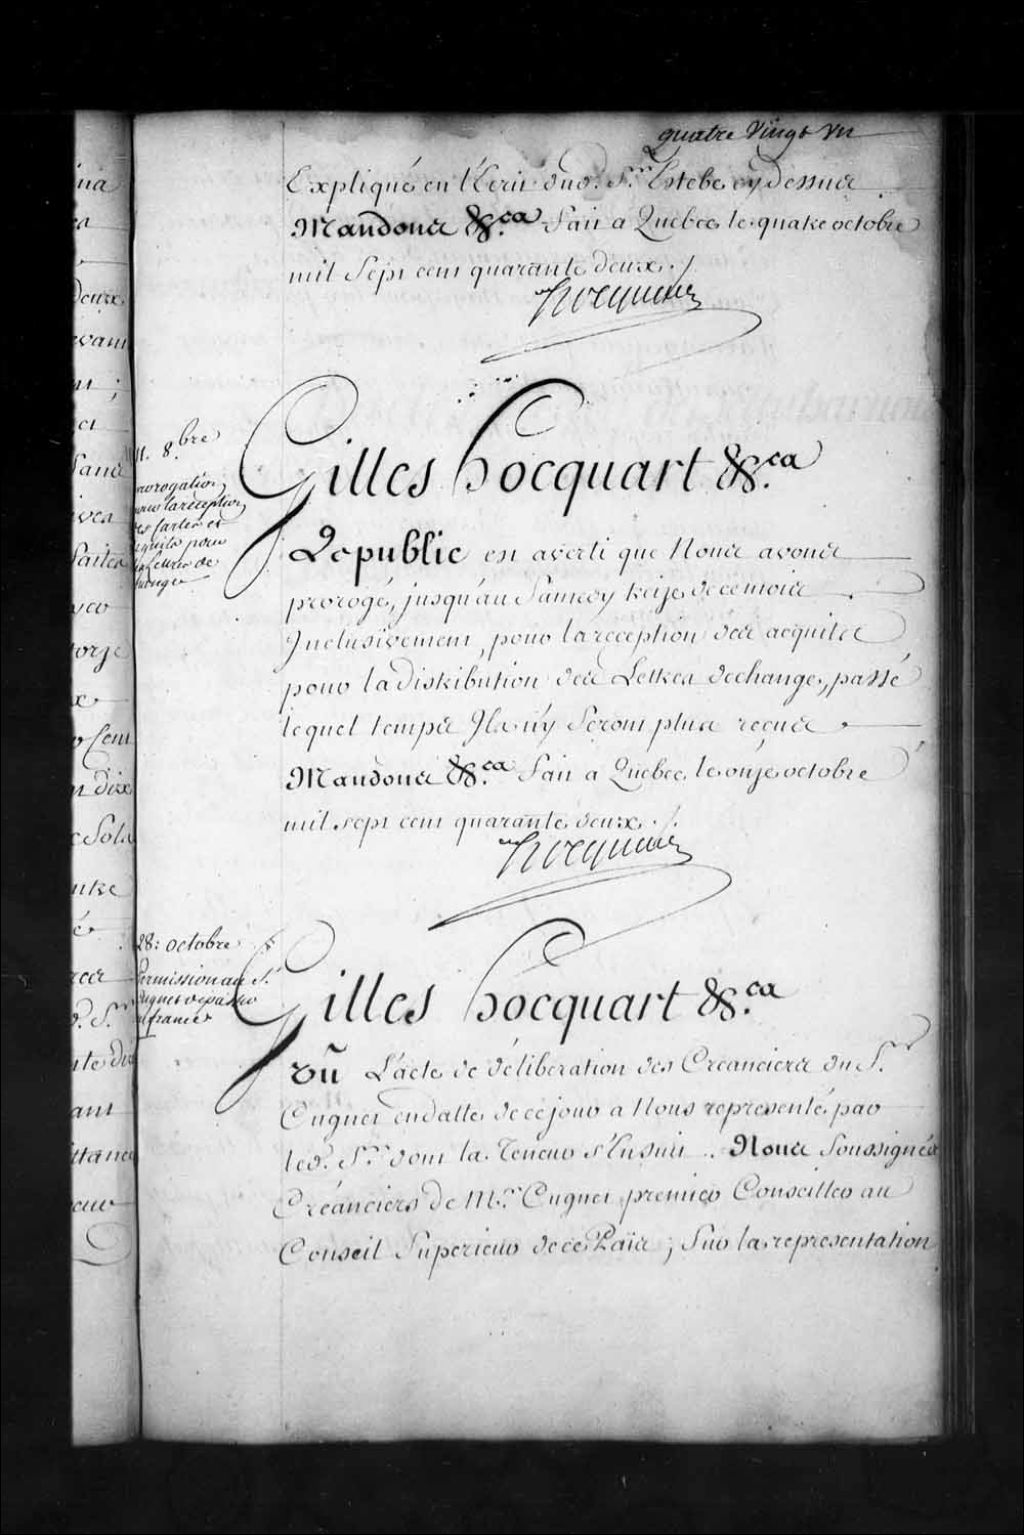 quatre Vingt Un
Expliqué en l'Ecrit dud. Sr. Estebe cy dessus
Mandons &ca. Fait a Quebec le quatre octobre
mil sept cent quarante deux ./.
Hocquart
11. 8.bre
prorogation
pour la reception
et
acquits pour
les Lettres de
change
Gilles Hocquart &.ca
Le public est averti que Nous avons
prorogé, jusqu'au Samedy treize de ce mois
Inclusivement, pour la reception des acquits
pour la distribution des Lettres de change, passé
lequel temps Ils n'y Seront plus reçus
Mandons &.ca Fait a Quebec le onze octobre
mil sept cent quarante deux ./.
Hocquart
28: octobre
Permission au S.r
Cugnet de passer
en france
Gilles Hocquart &.ca
Vû L'acte de déliberation des Creanciers du S.r
Cugnet en datte de ce jour a Nous representé par
led. S.r dont la Teneur s'Ensuit .. Nous Soussignés
Créanciers de M.r Cugnet premier Conseiller au
Conseil Superieur de ce Païs ; Sur la representation